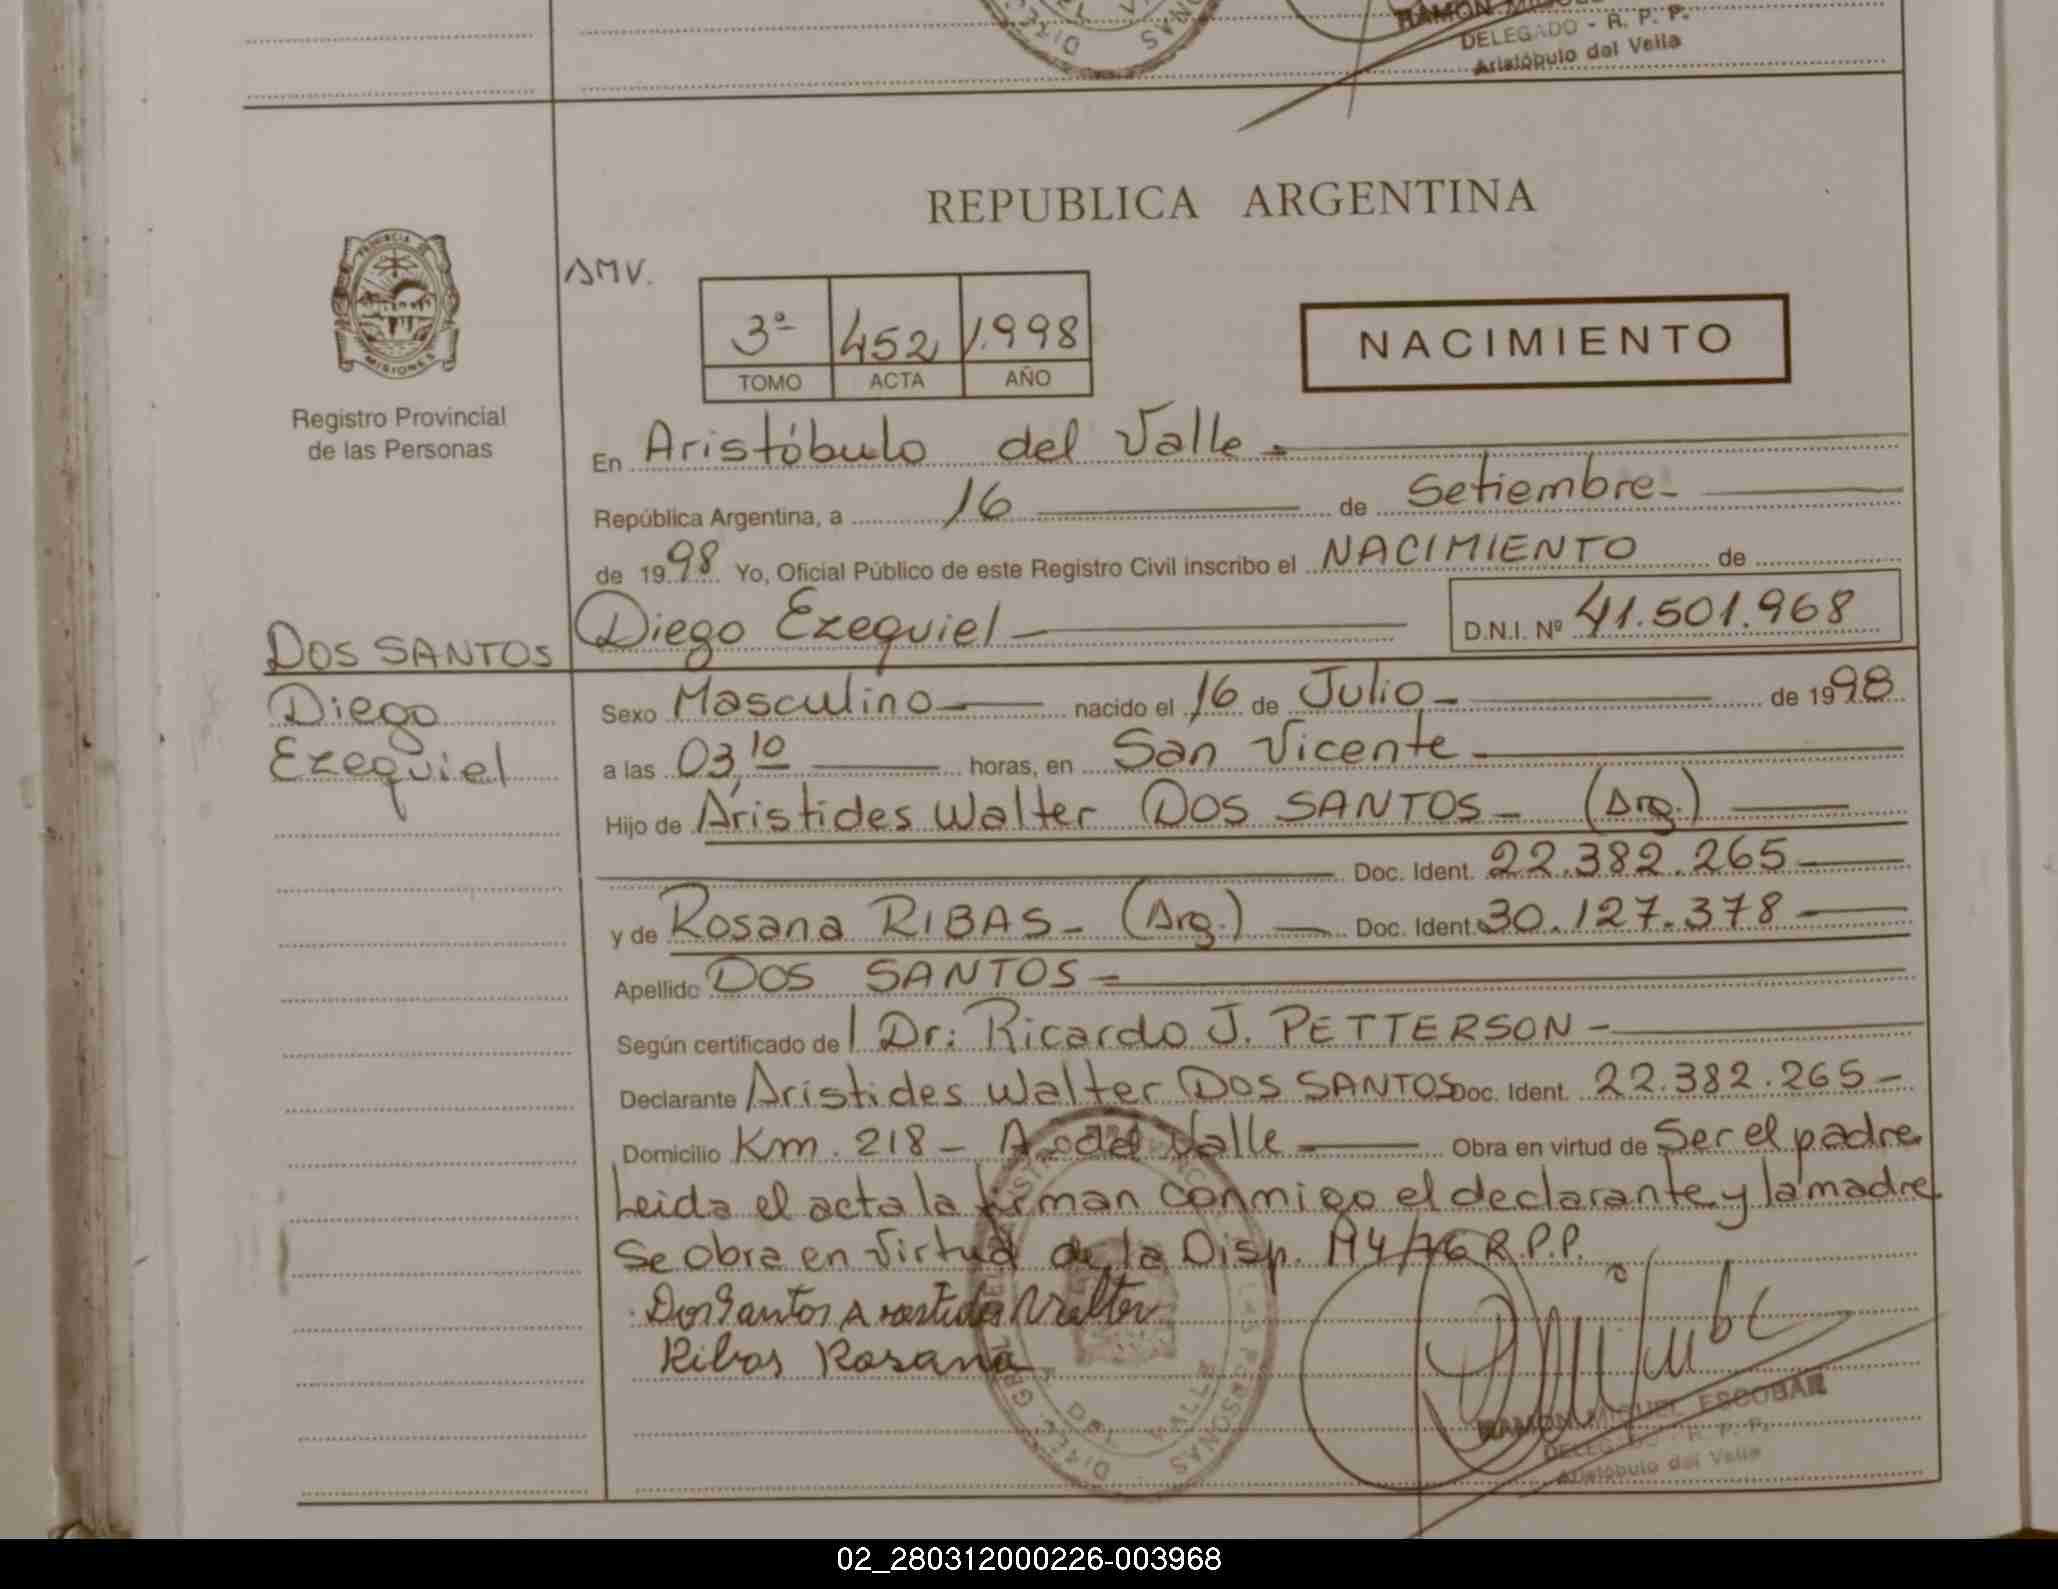 DELEGADO - R. P. P.
Aristóbulo del Valle
REPUBLICA ARGENTINA
PROVINCIA DE
MISIONES
AMV.
3ª 452 1.998
TOMO ACTA AÑO
NACIMIENTO
Registro Provincial
de las Personas
En Aristóbulo del Valle
República Argentina, a 16 de Setiembre
de 1998 Yo, Oficial Público de este Registro Civil inscribo el NACIMIENTO de
Diego Ezequiel D.N.I. Nº 41.501.968
DOS SANTOS
Diego
Ezequiel
Sexo Masculino nacido el 16 de Julio de 1998
a las 03,10 horas, en San Vicente
Hijo de Aristides Walter DOS SANTOS - (Arg.)
Doc. Ident. 22.382.265
y de Rosana RIBAS - (Arg.) Doc. Ident. 30.127.378
Apellido DOS SANTOS
Según certificado de Dr: Ricardo J. PETTERSON
Declarante Aristides Walter DOS SANTOS Doc. Ident. 22.382.265
Domicilio Km. 218 - A. del Valle Obra en virtud de Ser el padre
Leida el acta la firman conmigo el declarante y la madre
Se obra en virtud de la Disp. R.P.P.
Dos Santos Aristides Walter
Ribas Rosana
RAMON MIGUEL ESCOBAR
DELEGADO - R. P. P.
Aristóbulo del Valle
02_280312000226-003968